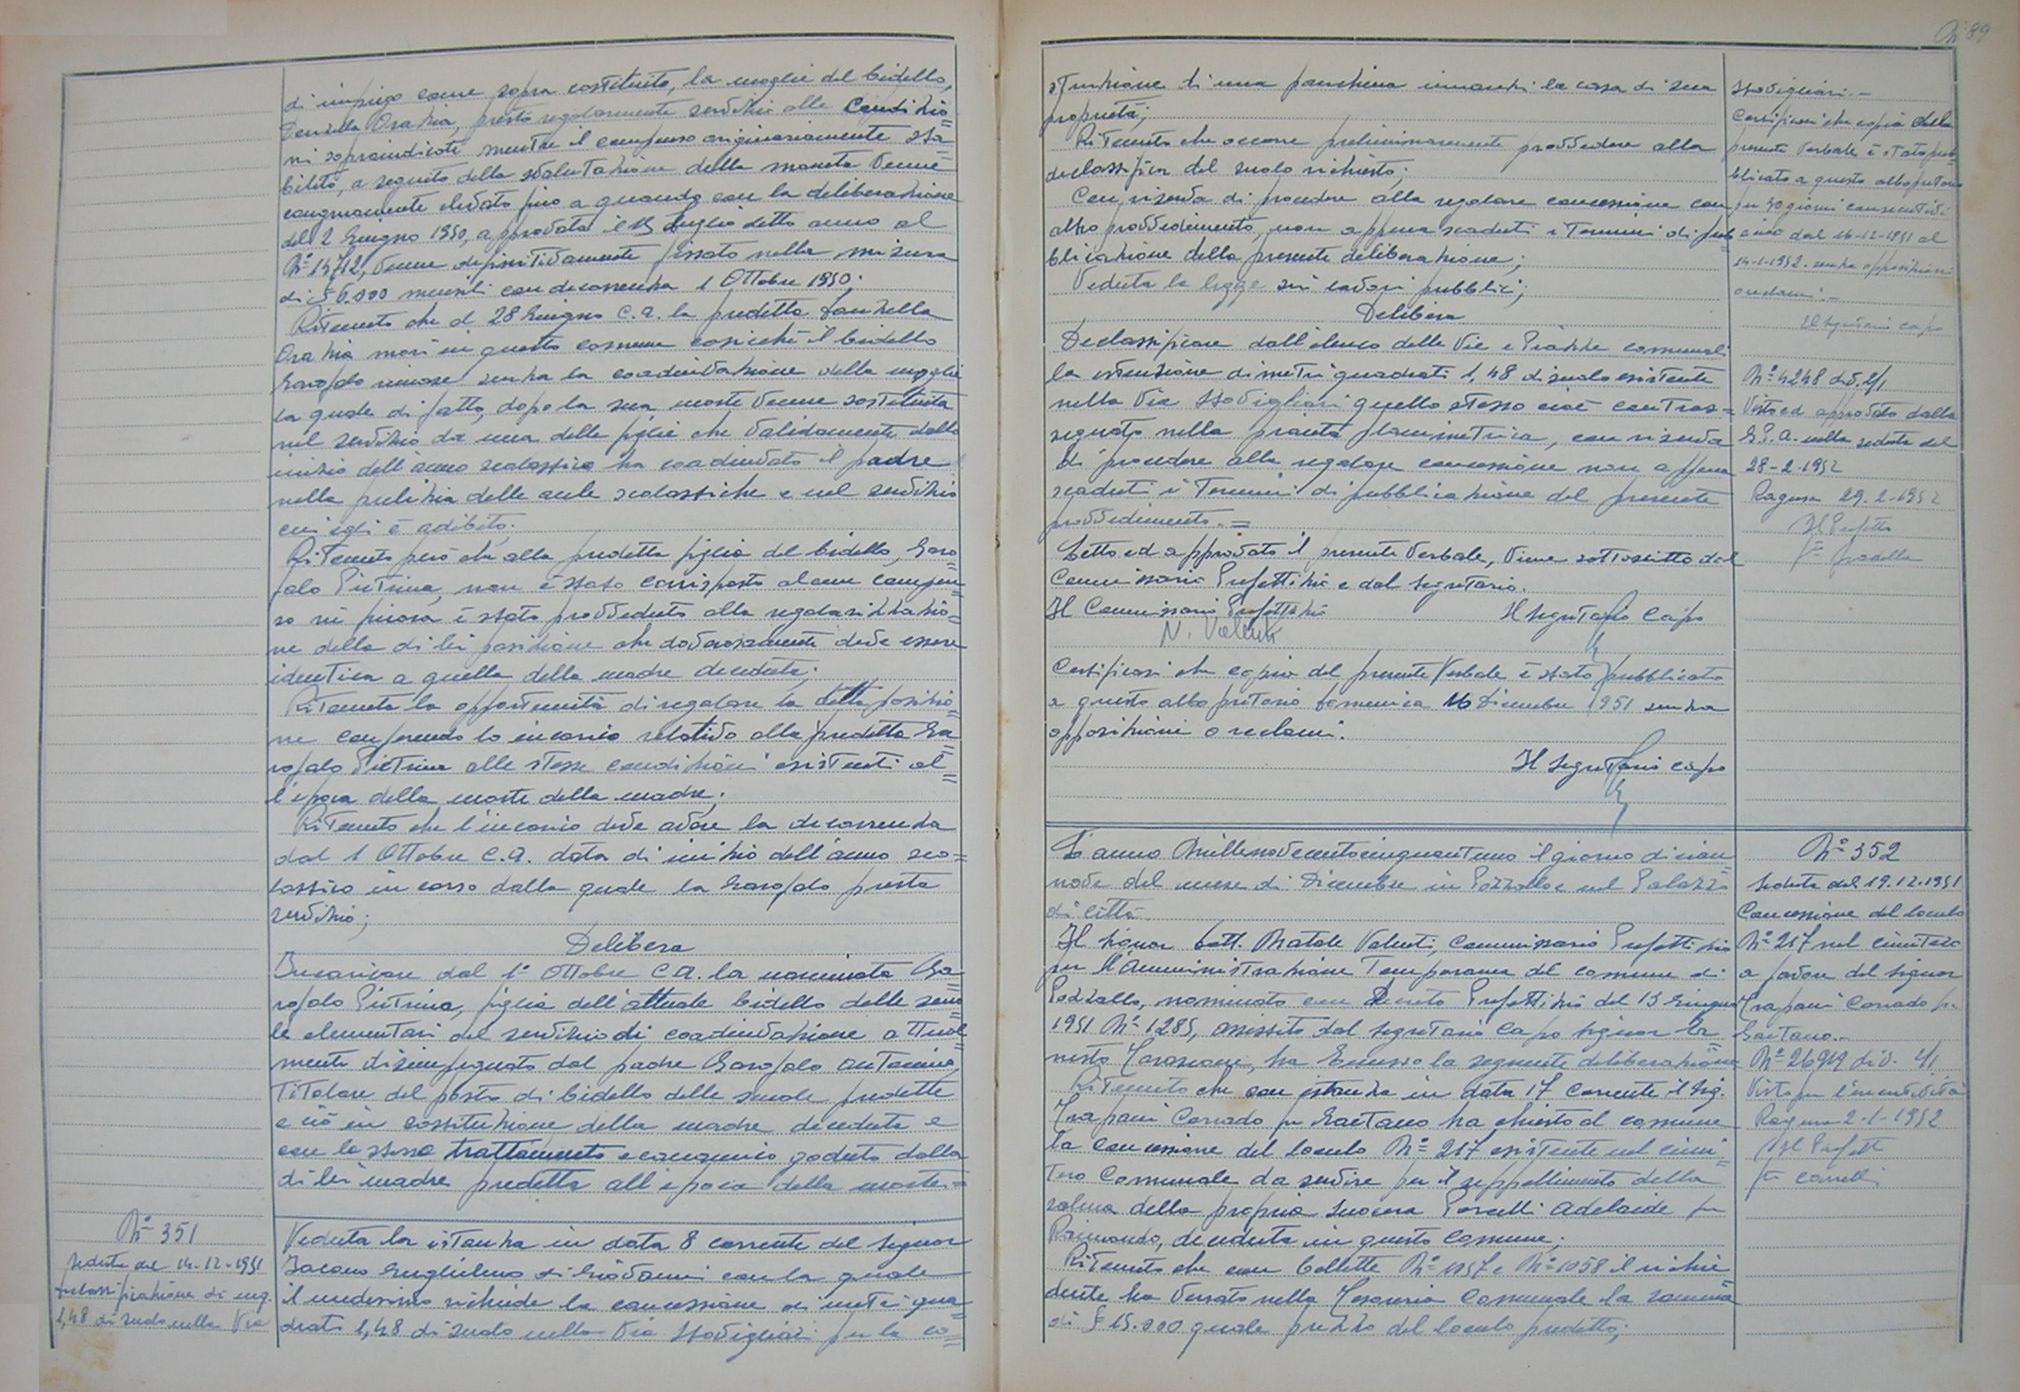 di impiego come sopra costituito, la moglie del bidello,
Orazia, prestò regolarmente servizio alle condizio=
ni sopraindicate mentre il compenso originariamente sta=
bilito, a seguito della svalutazione della moneta venne
congruamente elevato fino a quando con la deliberazione
del 2 Giugno 1950, approvata il 15 Luglio detto anno al
N° 14712, venne definitivamente fissato nella misura
di £ 6.000 mensili con decorrenza 1 Ottobre 1950;
Ritenuto che il 28 Giugno c.a. la predetta
Orazia morì in questo comune cosicché il bidello
Garofalo rimase senza la coadiuvazione della moglie
la quale di fatto, dopo la sua morte venne sostituita
nel servizio da una delle figlie che validamente dallo
inizio dell'anno scolastico ha coadiuvato il padre
nella pulizia delle aule scolastiche e nel servizio
cui egli è adibito;
Ritenuto però che alla predetta figlia del bidello, Garo
falo Pietrina, non è stato corrisposto alcun compen=
so né finora è stato provveduto alla regolarizzazio=
ne della di lei posizione che doverosamente deve essere
identica a quella della madre deceduta;
Ritenuta la opportunità di regolare la detta posizio=
ne conferendo lo incarico relativo alla predetta Ga=
rofalo Pietrina alle stesse condizioni esistenti al=
l'epoca della morte della madre;
Ritenuto che l'incarico deve avere la decorrenza
dal 1 Ottobre c.a. data di inizio dell'anno sco=
lastico in corso dalla quale la Garofalo presta
servizio;
Delibera
Incaricare dal 1° Ottobre c.a. la nominata Ga=
rofalo Pietrina, figlia dell'attuale bidello delle scuo
le elementari del servizio di coadiuvazione attual=
mente disimpegnato dal padre Garofalo Antonino,
titolare del posto di bidello delle scuole predette
e ciò in sostituzione della madre deceduta e
con lo stesso trattamento economico goduto dalla
di lei madre predetta all'epoca della morte.=
N° 351
Seduta del 14-12-1951
Declassificazione di mq.
1,48 di suolo nella Via
Veduta la istanza in data 8 corrente del Signor
Iacono Guglielmo di Giovanni con la quale
il medesimo richiede la concessione di metri qua
drati 1,48 di suolo nella Via Stovigliai per la co=
N° 89
struzione di una panchina innanzi la casa di sua
proprietà;
Ritenuto che occorre preliminarmente provvedere alla
declassifica del suolo richiesto;
Con riserva di procedere alla regolare concessione con
altro provvedimento, non appena scaduti i termini di pub
blicazione della presente deliberazione;
Veduta la legge sui lavori pubblici;
Delibera
Declassificare dall'elenco delle Vie e Piazze comunali
la estensione di metri quadrati 1,48 di suolo esistente
nella Via Stovigliai quello stesso cioè contras=
segnato nella pianta planimetrica, con riserva
di procedere alla regolare concessione non appena
scaduti i termini di pubblicazione del presente
provvedimento.=
Letto ed approvato il presente verbale, viene sottoscritto dal
Commissario Prefettizio e dal Segretario.
Il Commissario Prefettizio Il Segretario Capo
N. Valenti
Certificasi che copia del presente verbale è stato pubblicato
a questo albo pretorio domenica 16 Dicembre 1951 senza
opposizioni o reclami.
Il Segretario Capo
Stovigliai.-
Certificasi che copia della
presente verbale è stato pub
blicato a questo albo pretorio
per 30 giorni consecutivi
cioè dal 16-12-1951 al
14-1-1952 senza opposizioni
o reclami.-
Il Segretario Capo
N° 4248 div. 2/1
Visto ed approvato dalla
G.P.A. nella seduta del
28-2-1952
Ragusa 29-2-1952
Il Prefetto
L'anno Millenovecentocinquantuno il giorno dician
nove del mese di Dicembre in Pozzallo e nel Palazzo
di Città.
Il Signor Dott. Natale Valenti, Commissario Prefettizio
per l'Amministrazione Temporanea del comune di
Pozzallo, nominato con Decreto Prefettizio del 13 Giugno
1951 N° 1285, assistito dal Segretario Capo Signor
ha emesso la seguente deliberazione
Ritenuto che con istanza in data 17 corrente il Sig.
Trapani Corrado fu Gaetano ha chiesto al comune
la concessione del loculo N° 217 esistente nel cimi=
tero Comunale da servire per il seppellimento della
salma della propria suocera Porcelli Adelaide fu
Raimondo, deceduta in questo Comune;
Ritenuto che con bollette N° 1057 e N° 1058 il richie
dente ha versato nella Tesoreria Comunale la somma
di £ 15.000 quale prezzo del loculo predetto;
N° 352
Seduta del 19.12.1951
Concessione del loculo
N° 217 nel cimitero
a favore del Signor
Trapani Corrado fu
Gaetano.-
N° 26919 div. 2/1
Visto per l'esecutività
Ragusa 2-1-1952
Il Prefetto